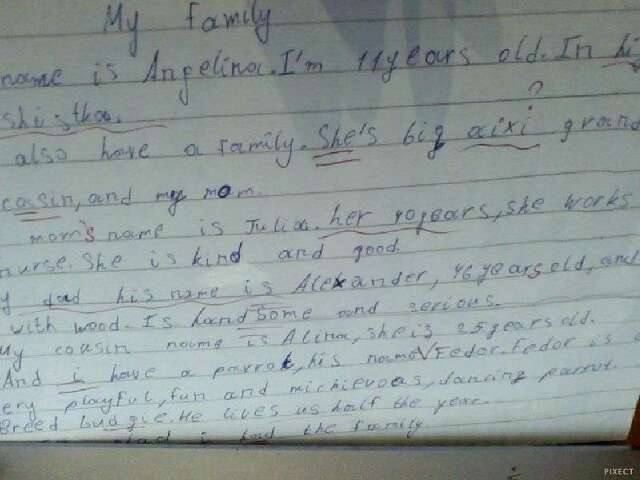 My family
name is Angelina. I'm 11 years old. In hi
shistka. ?
also have a family. She's big aixi grand
cousin, and my mom.
mom's name is Julia. her 40 years, she works
nurse. She is kind and good.
y dad his name is Alexander, 46 years old, and
with wood. Is handsome and serious.
My cousin name is Alina, she is 25 years old.
And i have a parrot, his name √ Fedor. Fedor is a
ery playful, fun and michievoas, dancing parrot.
Breed budgie. He lives us half the year.
glad i had the family
PIXECT